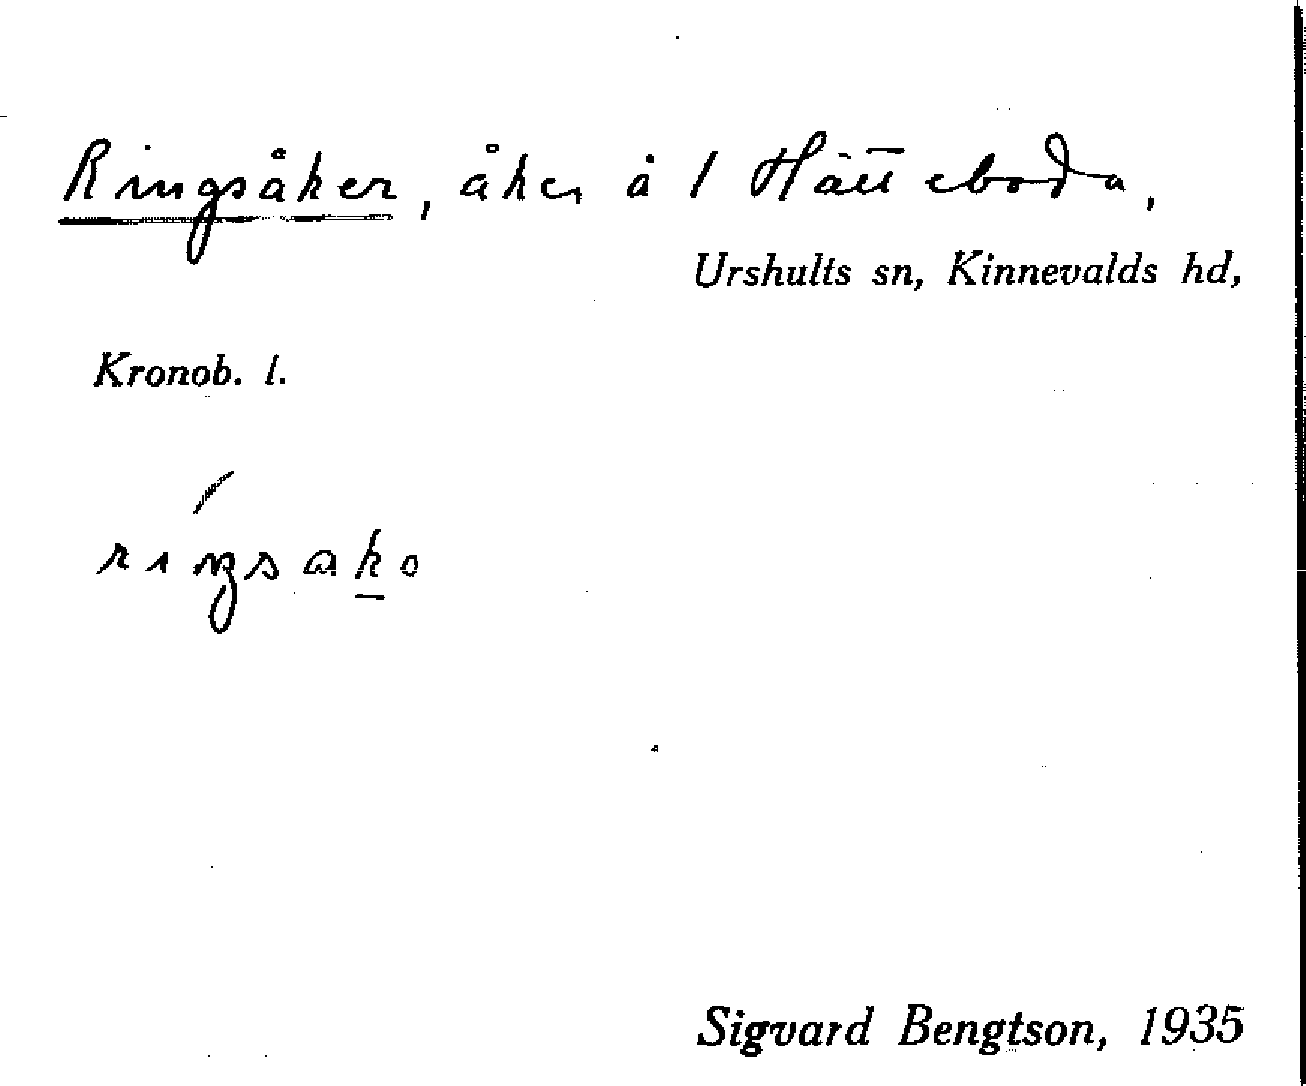 Ringsåker, åker å 1 Hätteboda,
Urshults sn, Kinnevalds hd,
Kronob. l.
riŋsako
Sigvard Bengtson, 1935